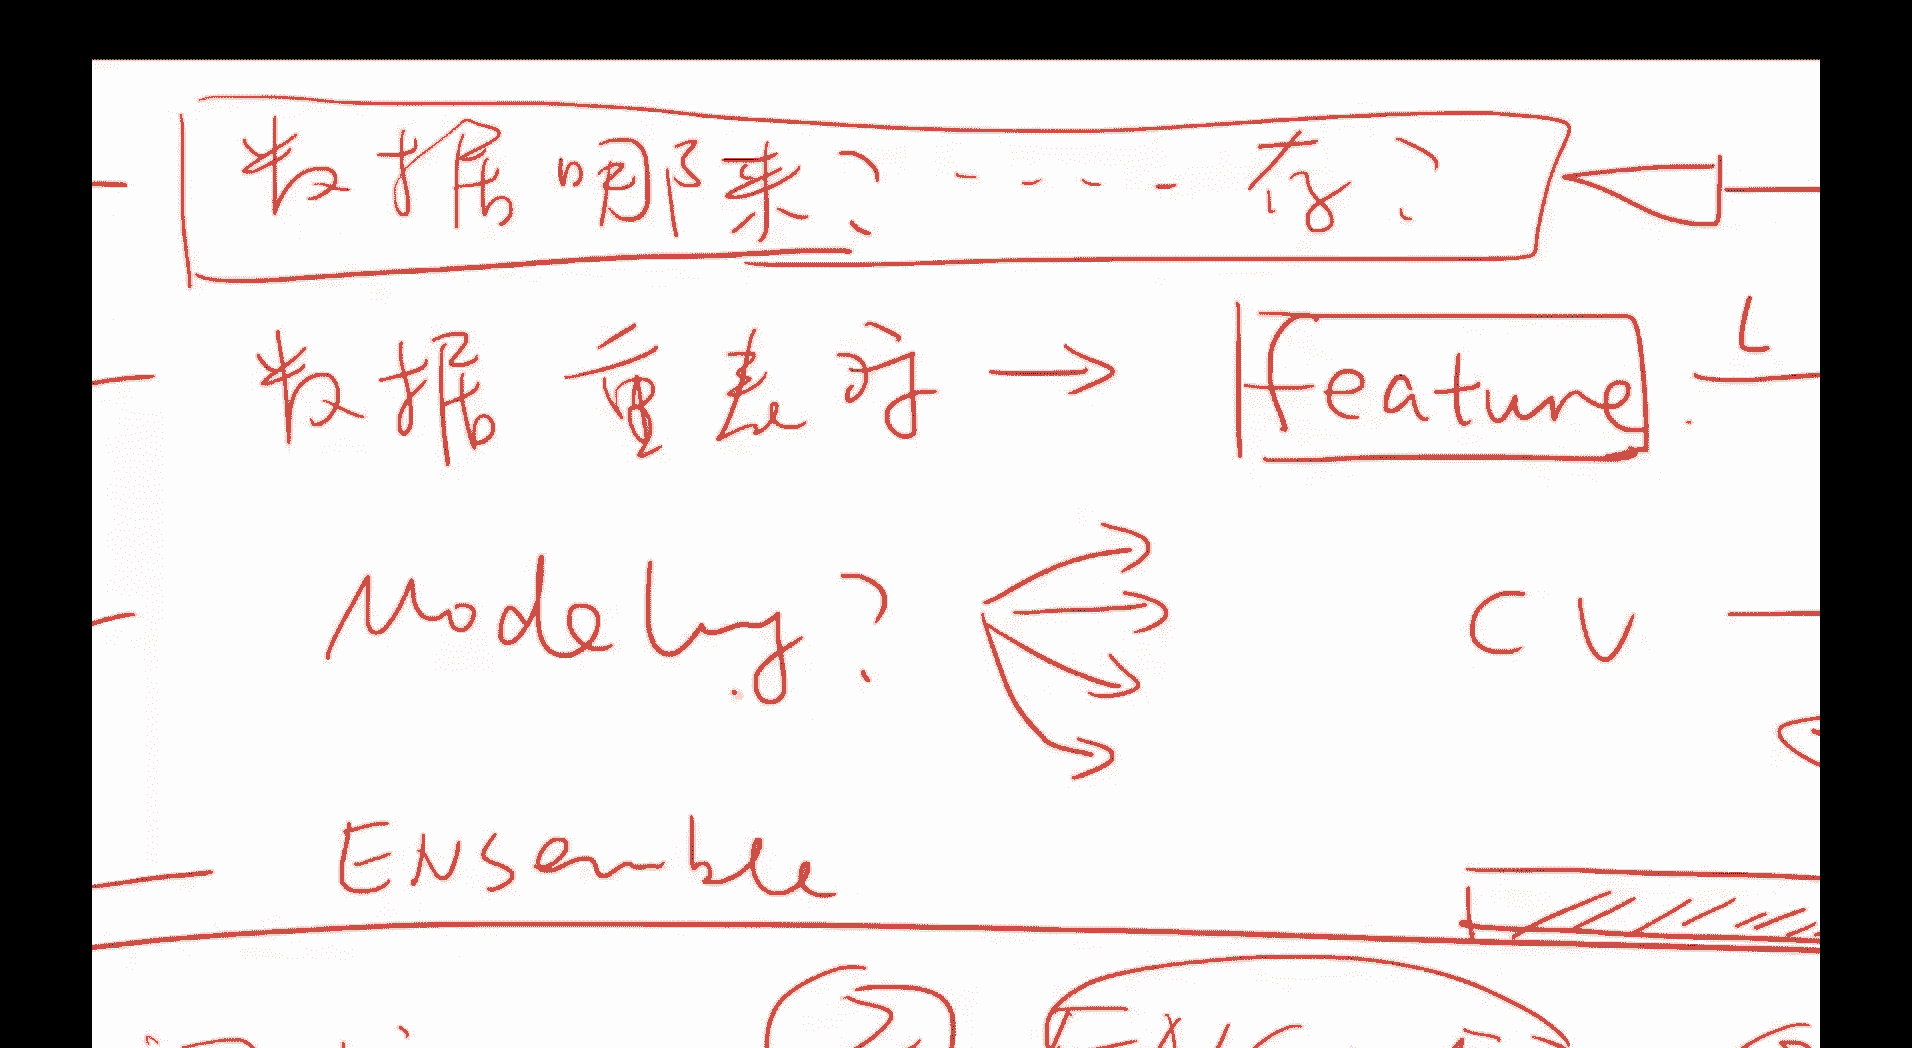 数据哪来? ---- 存?
数据重表示 → Feature. L
Modeling? CV
Ensemble